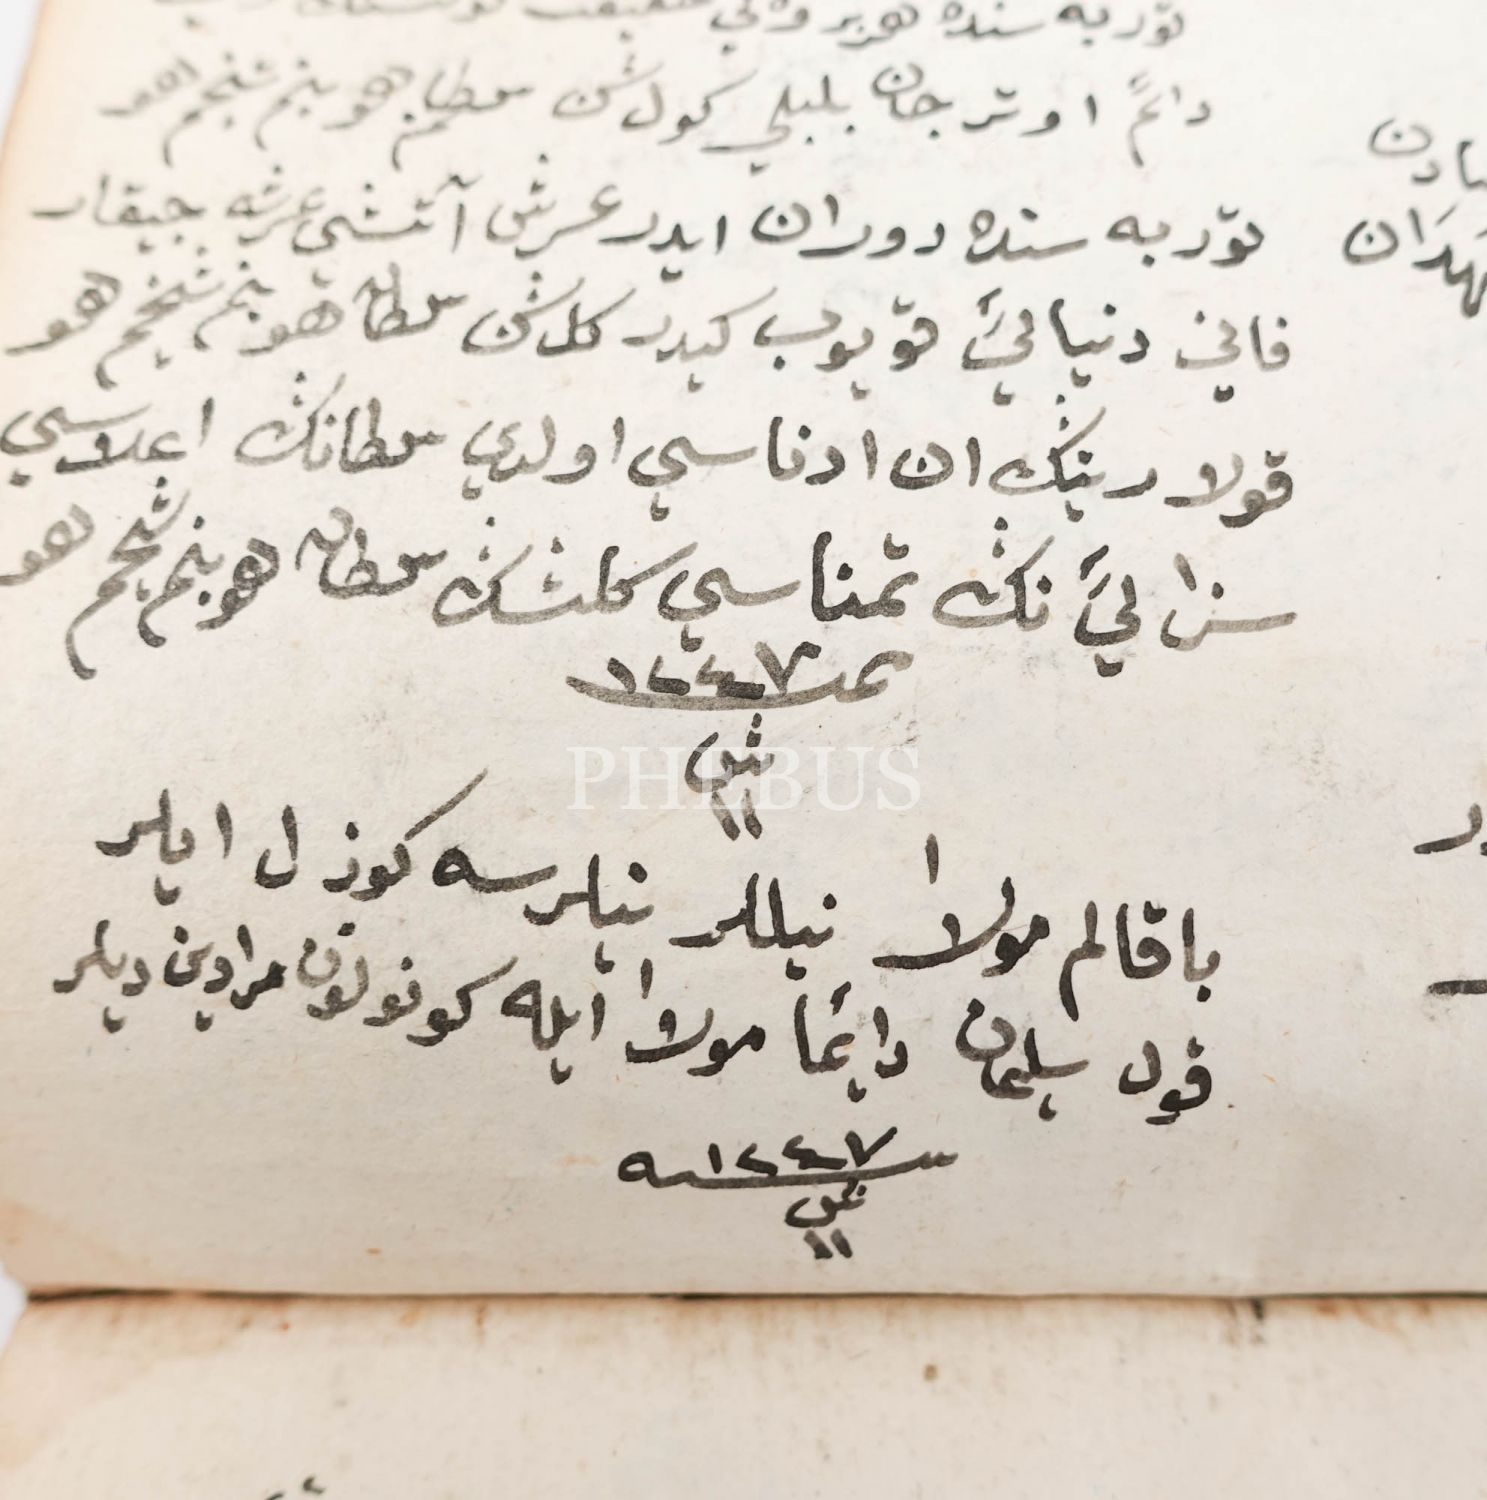 تۆربه سنده هربر
دائمً اوتر جان بلبلي كول شن سلطان هو بنم شيخم هو
تۆربه سنده دوران ايدر عرش آتشي عرشه جيقار
فاني دنيا ليَ قۆيوب كيدر كل شن سلطان هو بنم شيخم هو
قولا رينڭ ان ادناسي اولدي سلطانڭ اعلاسي
سزا ليَ نڭ تمناسي كلشن سلطان هو بنم شيخم هو
تمت ١٢٤٧
PHEBUS
باقالم مولا نيللر نيلرسه كوزل ايلر
قول سليمان دائما مولا ايله كونولون مرادين ديلر
سنه ١٢٤٧